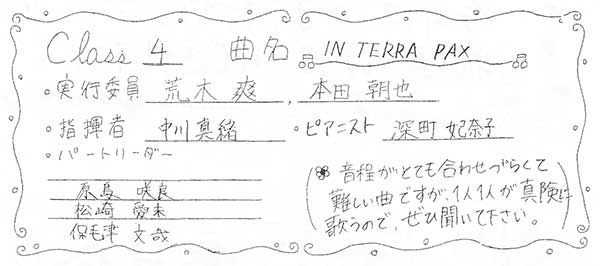 Class 4 曲名 IN TERRA PAX
・実行委員 荒木 爽 , 本田 朝也
・指揮者 中川真緒 ・ピアニスト 深町 妃奈子
・パートリーダー
原島 咲良
松崎 愛未
保毛津 文哉
音程がとても合わせづらくて
難しい曲ですが、1人1人が真険に
歌うので、ぜひ聞いて下さい。